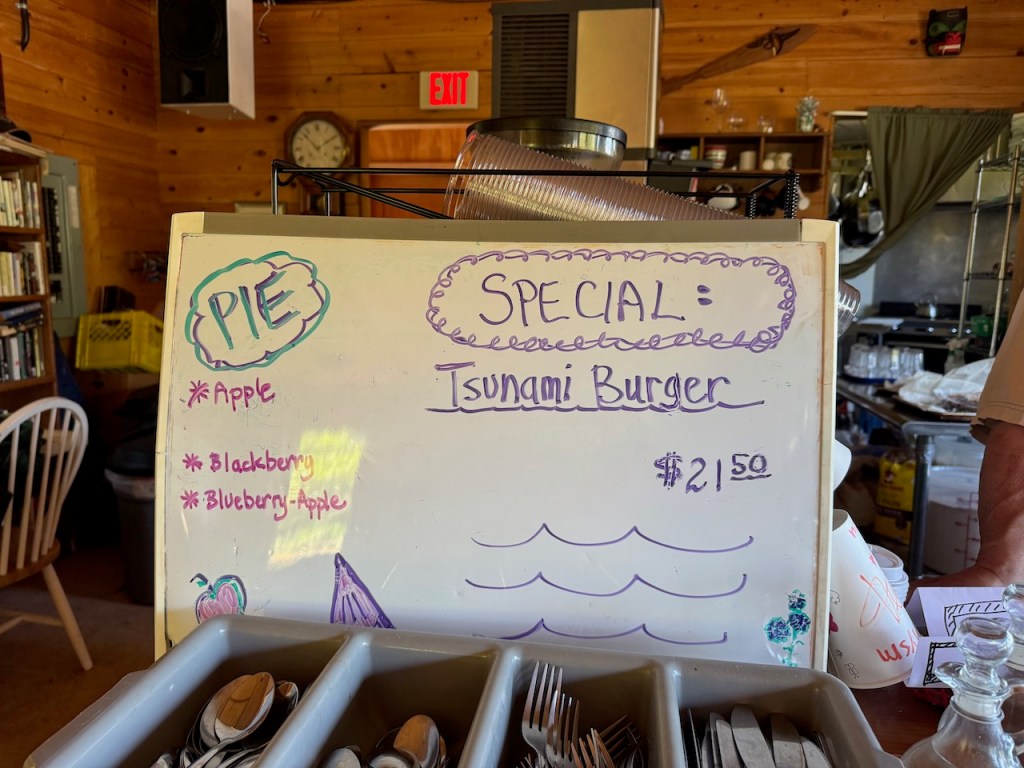 EXIT
PIE
* Apple
* Blackberry
* Blueberry-Apple
SPECIAL:
Tsunami Burger
$21 50